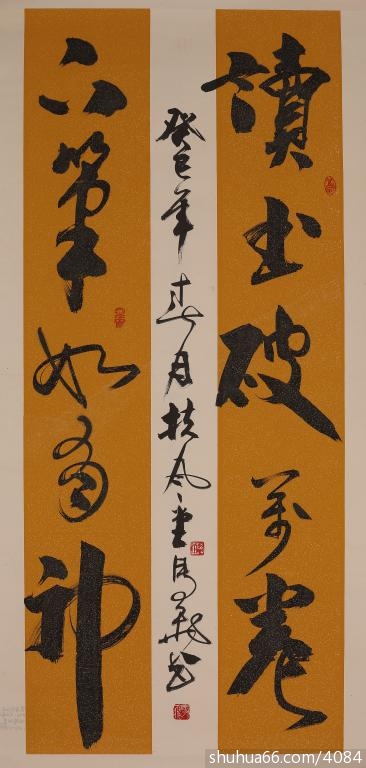 讀書破萬卷
癸巳年春月扶风堂
下筆如有神
shuhua66.com/4084